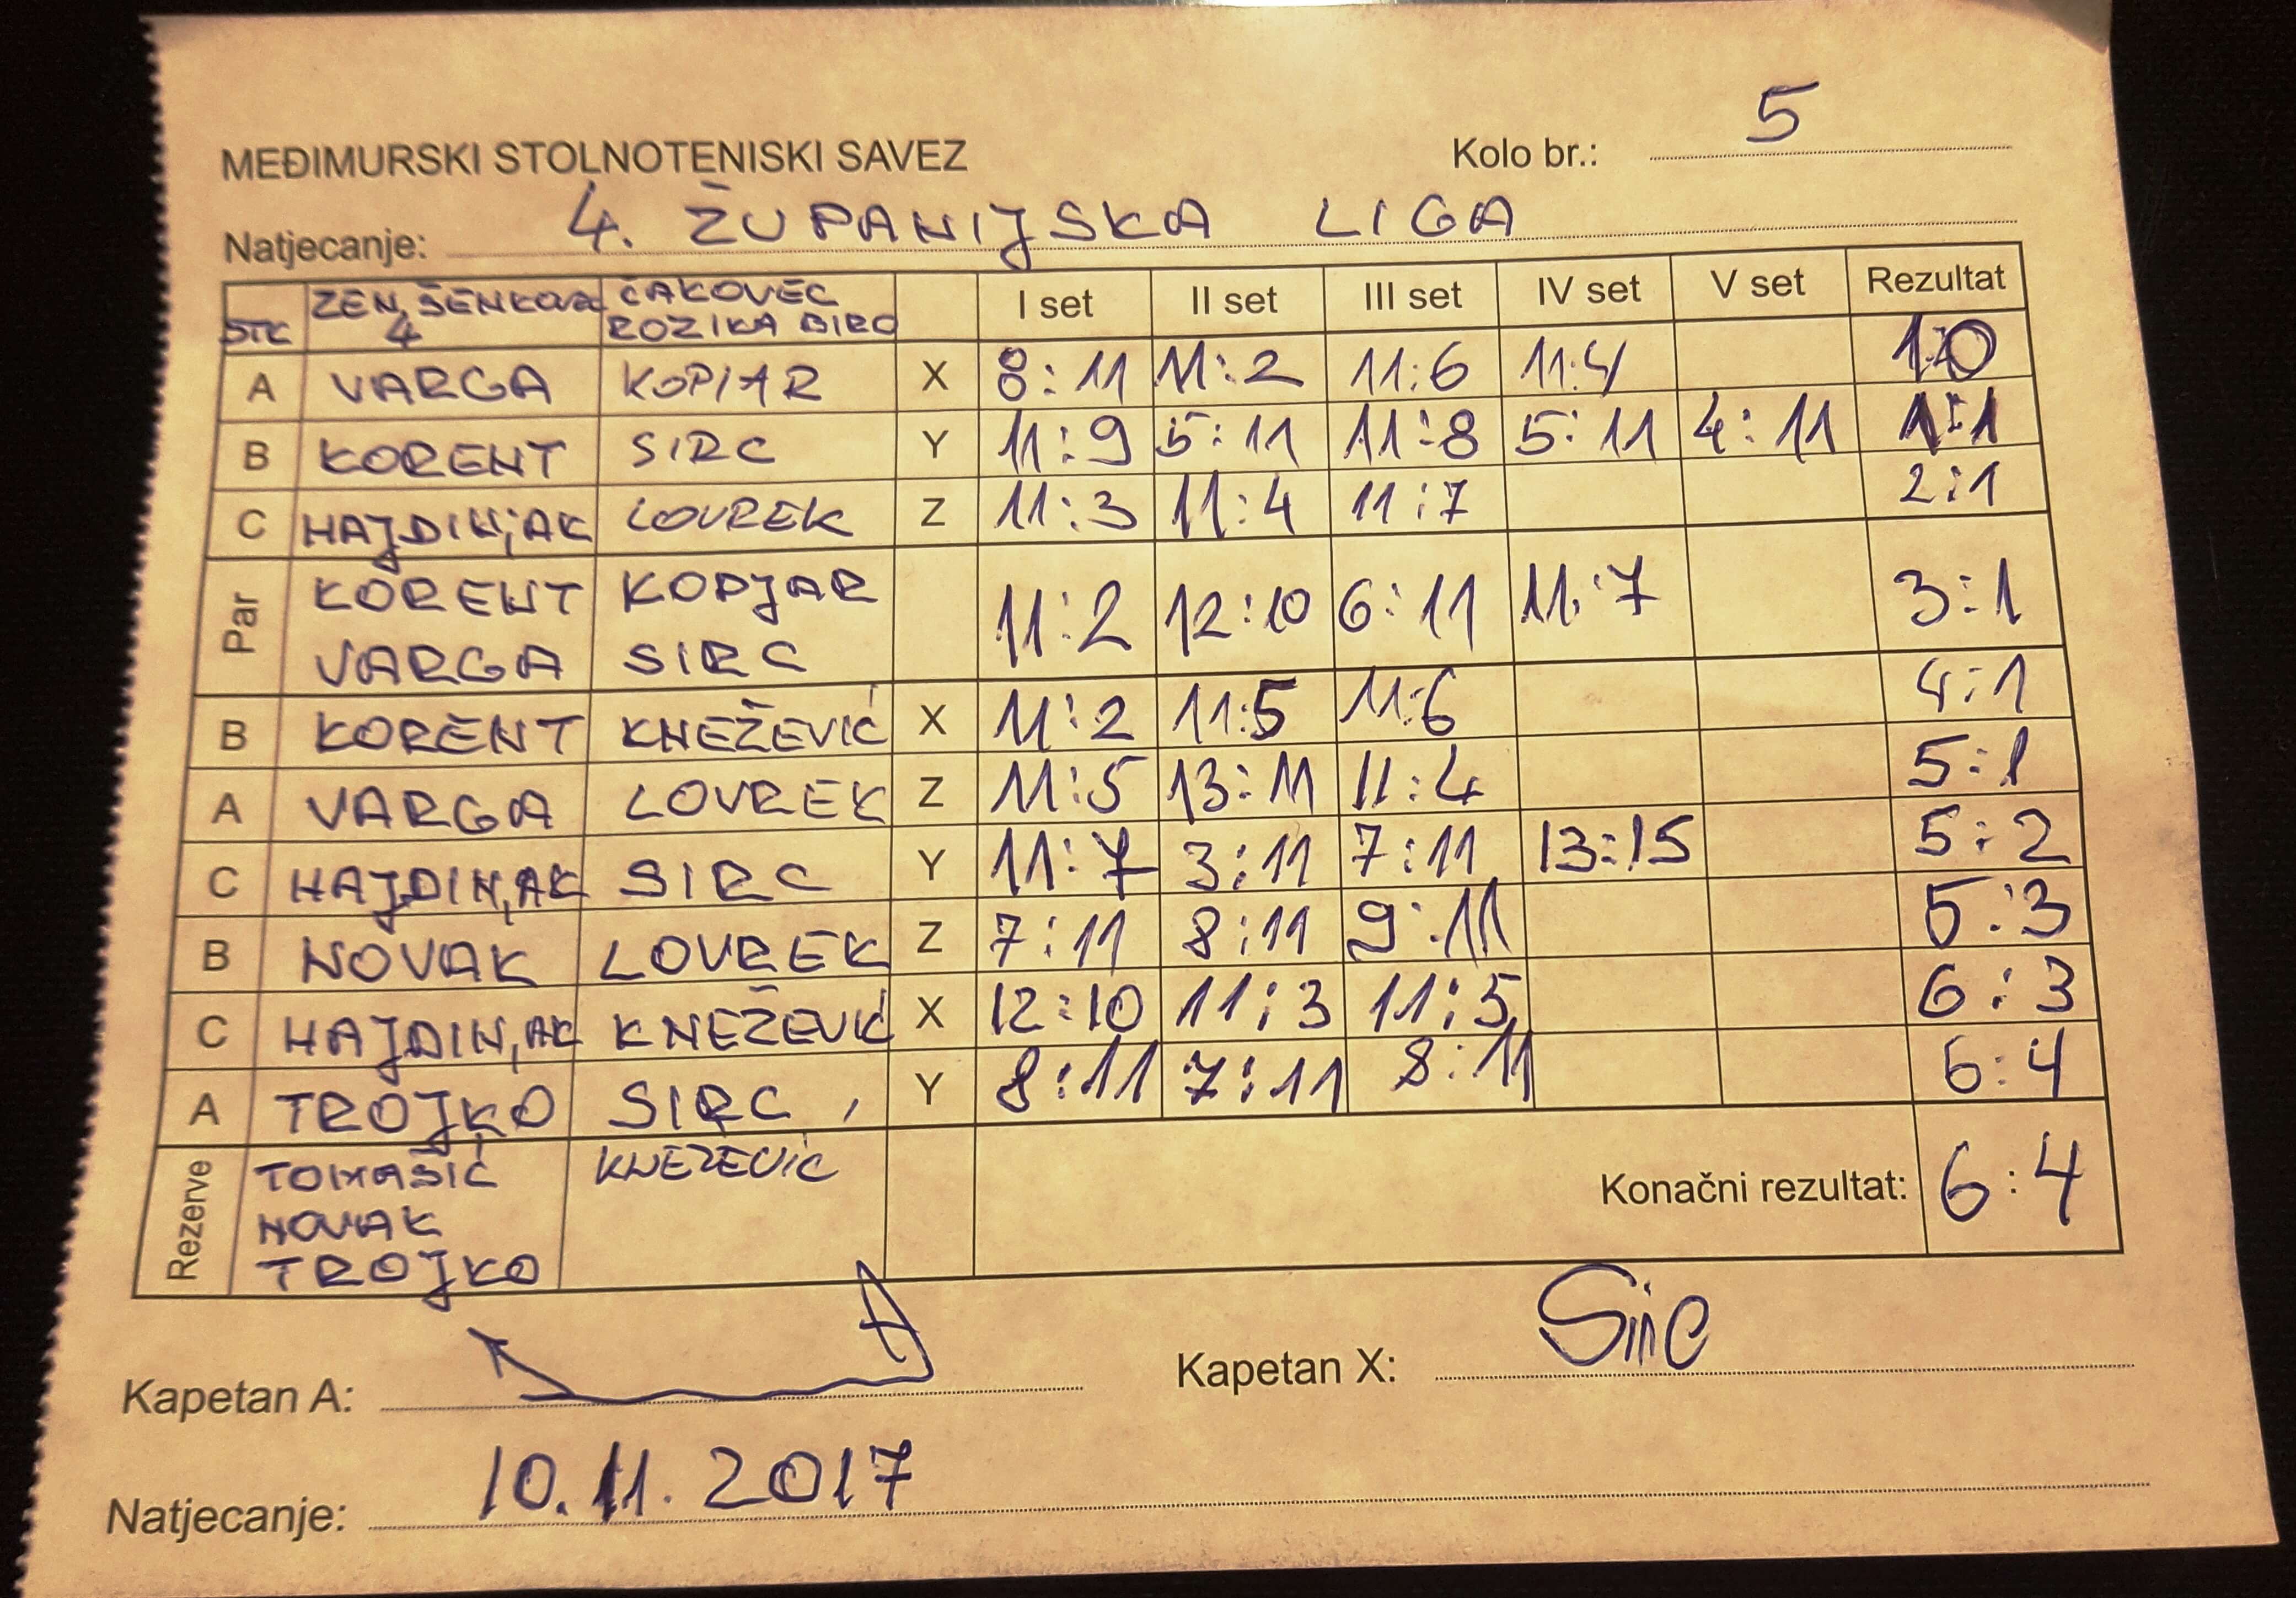 MEĐIMURSKI STOLNOTENISKI SAVEZ Kolo br.: 5
Natjecanje: 4. ŽUPANIJSKA LIGA
STK ZEN, ŠENKOVEC 4 ČAKOVEC ROZIKA BIRO I set II set III set IV set V set Rezultat
A VARGA KOPJAR X 8:11 11:2 11:6 11:4 1:0
B KORENT SIRC Y 11:9 5:11 11:8 5:11 4:11 1:1
C HAJDINJAK LOVREK Z 11:3 11:4 11:7 2:1
Par KORENT VARGA KOPJAR SIRC 11:2 12:10 6:11 11:7 3:1
B KORENT KNEŽEVIĆ X 11:2 11:5 11:6 4:1
A VARGA LOVREK Z 11:5 13:11 11:4 5:1
C HAJDINJAK SIRC Y 11:7 3:11 7:11 13:15 5:2
B NOVAK LOVREK Z 7:11 8:11 9:11 5:3
C HAJDINJAK KNEŽEVIĆ X 12:10 11:3 11:5 6:3
A TROJKO SIRC Y 8:11 7:11 8:11 6:4
Rezerve TOMAŠIĆ KNEŽEVIĆ
NOVAK
TROJKO
Konačni rezultat: 6:4
Kapetan A: Kapetan X: Sirc
Natjecanje: 10.11.2017